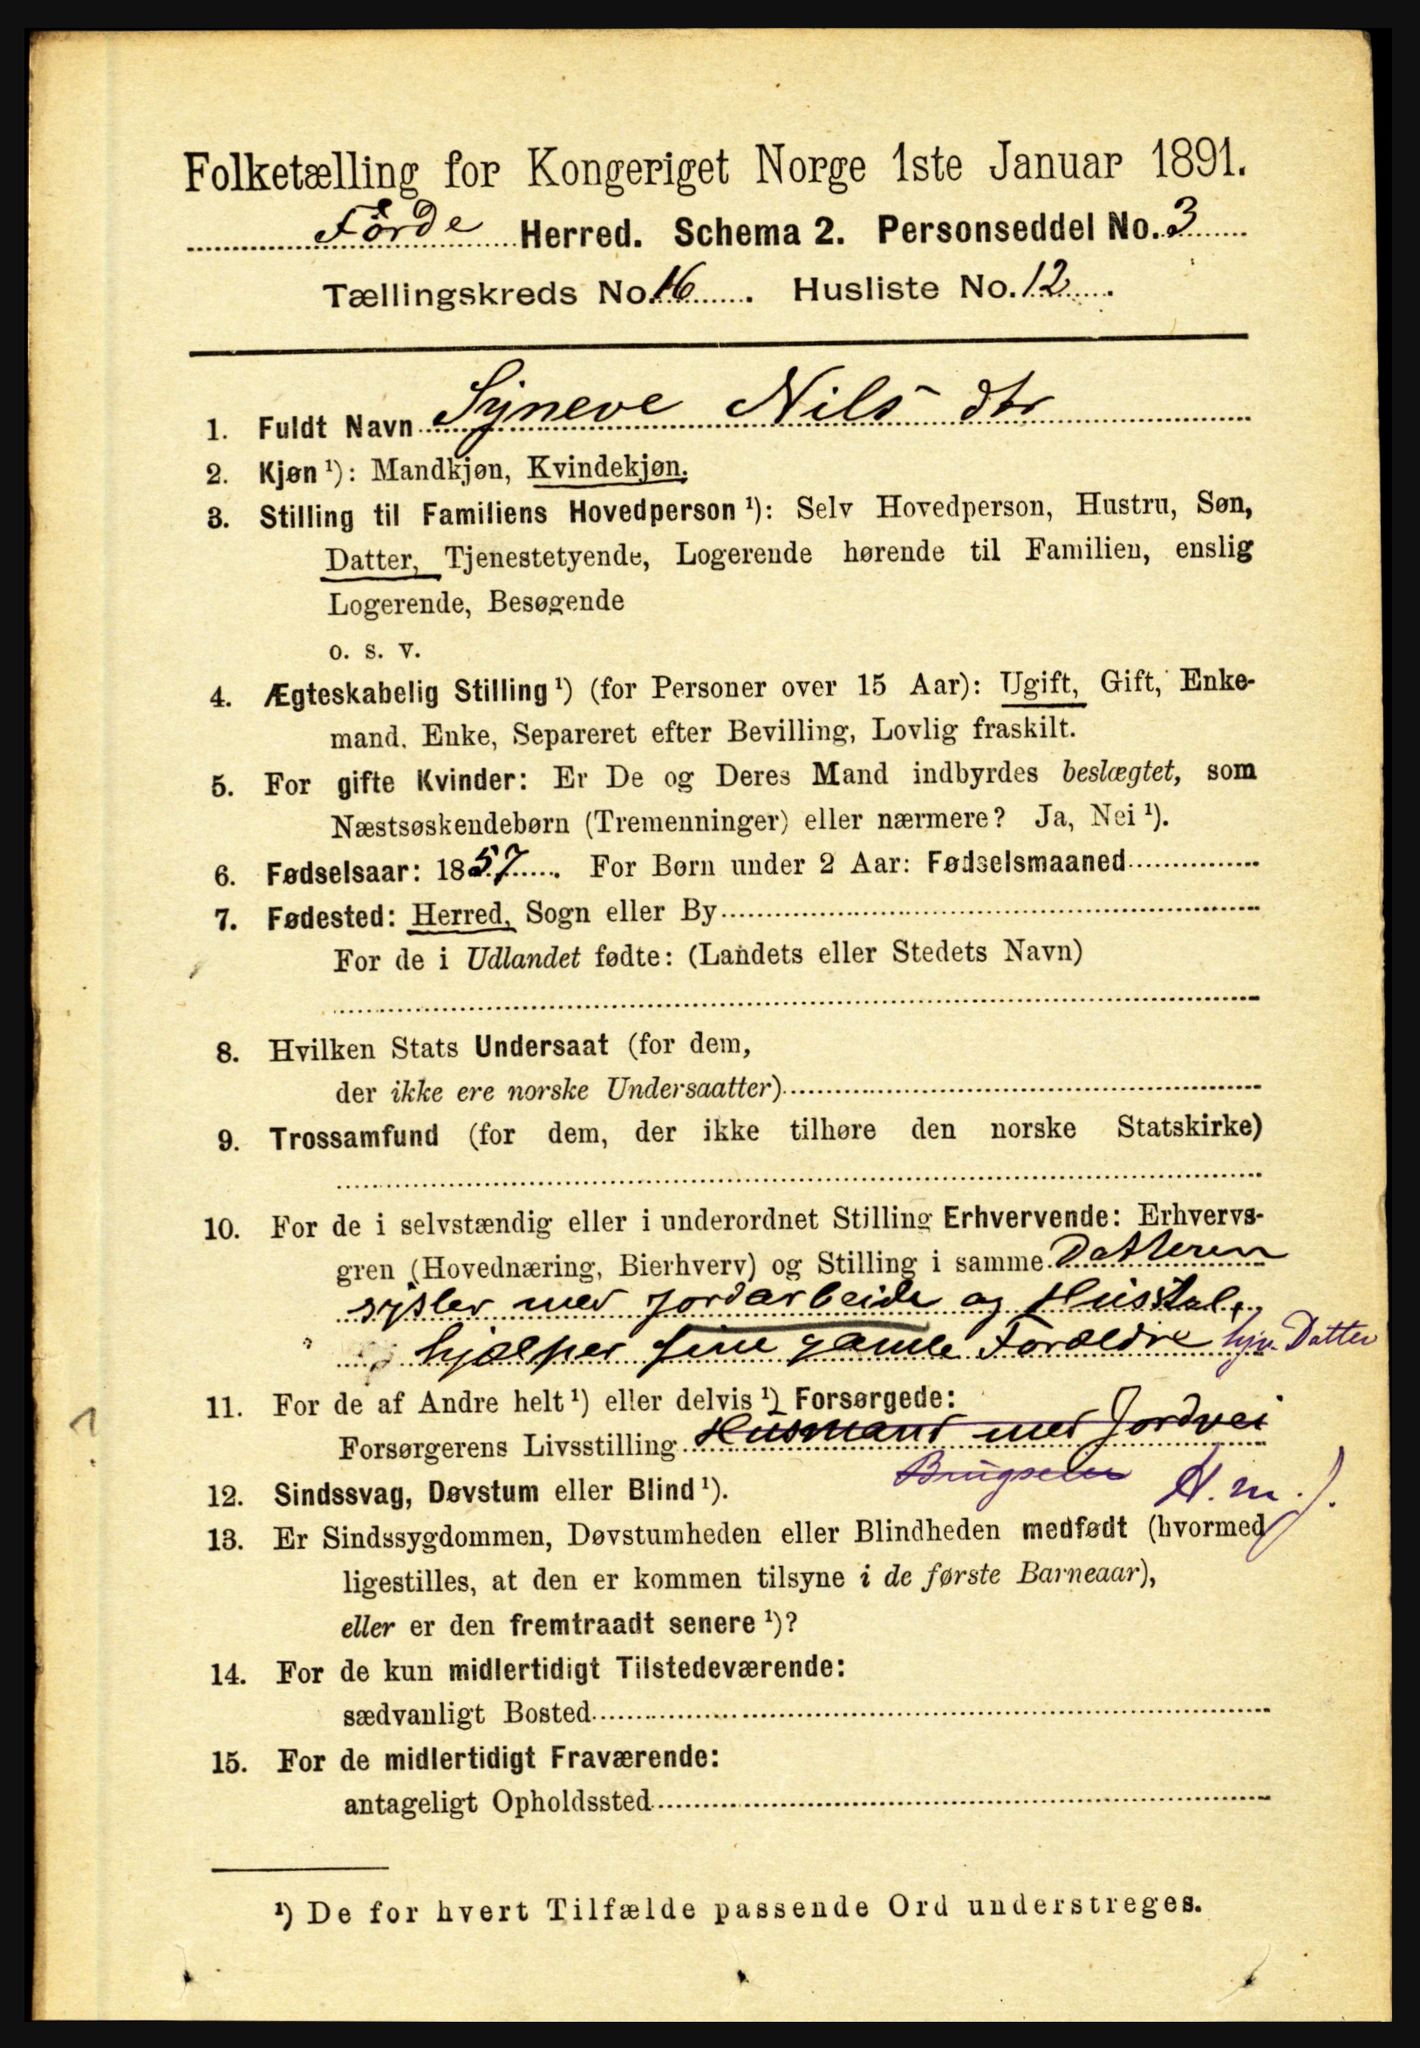 Folketælling for Kongeriget Norge 1ste Januar 1891.
Førde Herred. Schema 2. Personseddel No. 3
Tællingskreds No. 16. Husliste No. 12.
1. Fuldt Navn Syneve Nils dtr
2. Kjøn ¹): Mandkjøn, Kvindekjøn.
3. Stilling til Familiens Hovedperson ¹): Selv Hovedperson, Hustru, Søn,
Datter, Tjenestetyende, Logerende hørende til Familien, enslig
Logerende, Besøgende
o. s. v.
4. Ægteskabelig Stilling ¹) (for Personer over 15 Aar): Ugift, Gift, Enke-
mand, Enke, Separeret efter Bevilling, Lovlig fraskilt.
5. For gifte Kvinder: Er De og Deres Mand indbyrdes beslægtet, som
Næstsøskendebørn (Tremenninger) eller nærmere? Ja, Nei ¹).
6. Fødselsaar: 1857. For Børn under 2 Aar: Fødselsmaaned
7. Fødested: Herred, Sogn eller By
For de i Udlandet fødte: (Landets eller Stedets Navn)
8. Hvilken Stats Undersaat (for dem,
der ikke ere norske Undersaatter)
9. Trossamfund (for dem, der ikke tilhøre den norske Statskirke)
10. For de i selvstændig eller i underordnet Stilling Erhvervende: Erhvervs-
gren (Hovednæring, Bierhverv) og Stilling i samme Datteren
sysler med Jordarbeide og Husstel,
hjælper sine gamle Forældre hjv. Datter
11. For de af Andre helt ¹) eller delvis ¹) Forsørgede:
Forsørgerens Livsstilling Husmand med Jordvei
Brugseier H. m. J.
12. Sindssvag, Døvstum eller Blind ¹).
13. Er Sindssygdommen, Døvstumheden eller Blindheden medfødt (hvormed
ligestilles, at den er kommen tilsyne i de første Barneaar),
eller er den fremtraadt senere ¹)?
14. For de kun midlertidigt Tilstedeværende:
sædvanligt Bosted
15. For de midlertidigt Fraværende:
antageligt Opholdssted
¹) De for hvert Tilfælde passende Ord understreges.